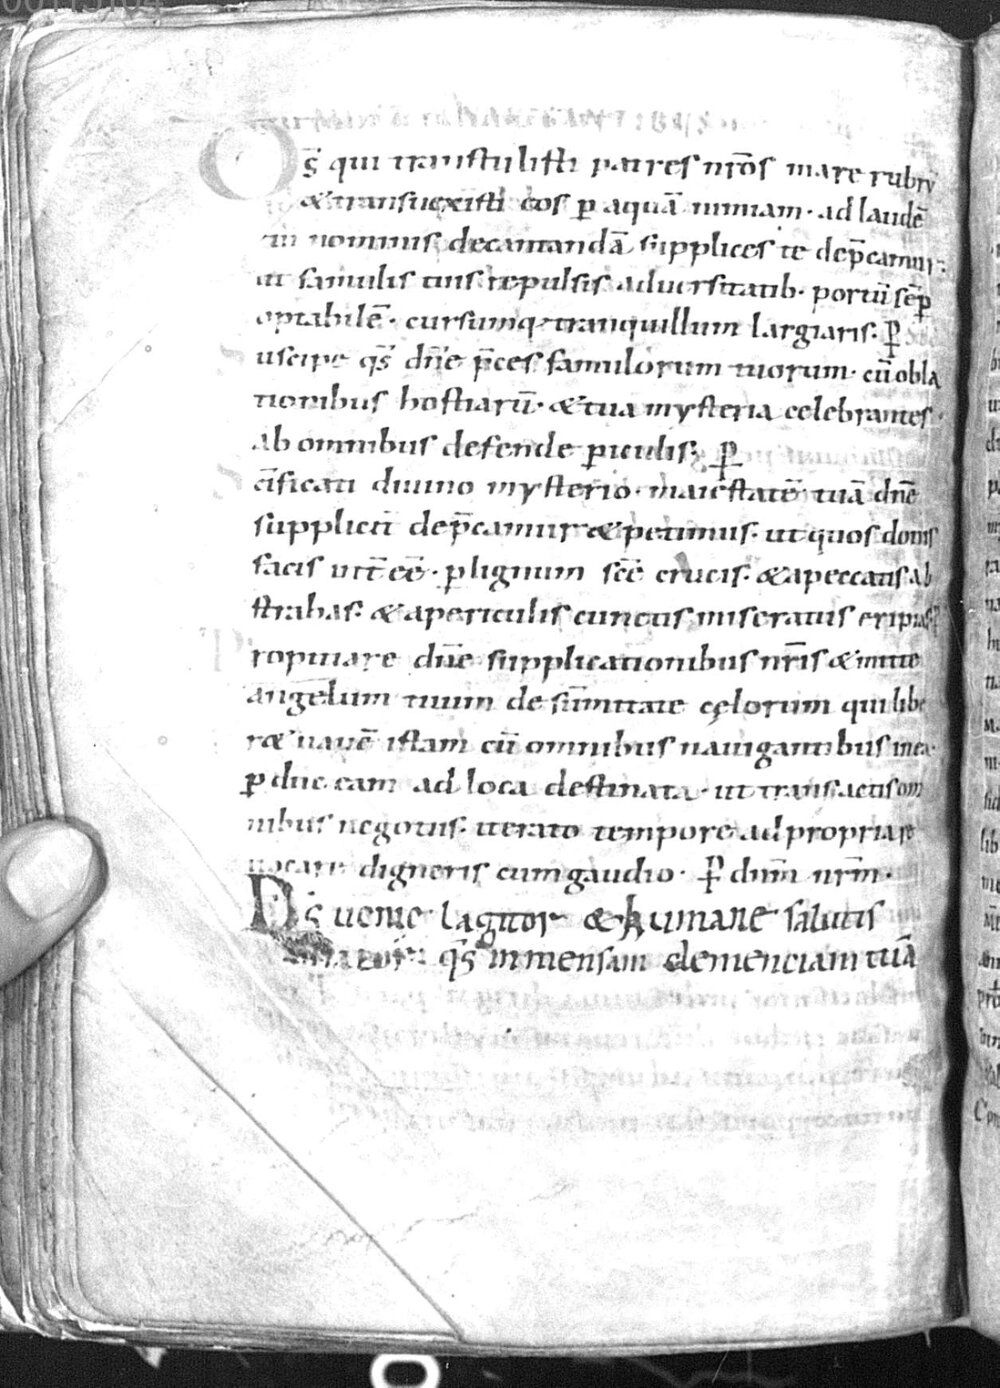 Ōs qui transtulisti patres nr̄os mare rubrū
& transuexisti eos p̄ aquā nimiam · ad laudē
tui nominis decantandā supplices te dep̄camur ·
ut famulis tuis repulsis aduersitatib · portū sēp
optabilē · cursumq; tranquillum largiaris · P̄
uscipe qs̄ dn̄e p̄ces famulorum tuorum · cū obla
tionibus hostiarū · & tua mysteria celebrantes ·
ab omnibus defende p̄iculis · P̄
c̄ificati diuino mysterio · maiestatē tuā dn̄e
suppliciter dep̄camur & petimus · ut quos donis
facis ēē · p̄ lignum sc̄ē crucis · & a peccatis ab
strahas · & a periculis cunctis miseratus eripias
ropitiare dn̄e supplicationibus nr̄is & mitte
angelum tuum de sūmitate cęlorum qui libe
r& nauē istam cū omnibus nauigantibus in ea ·
p̄duc eam ad loca destinata · ut transactis om
nibus negotiis · iterato tempore ad propria re
uocare digneris cum gaudio · P̄ dn̄m nr̄m ·
Ds̄ uenie lagitor & humane salutis
qs̄ inmensam clemenciam tuā